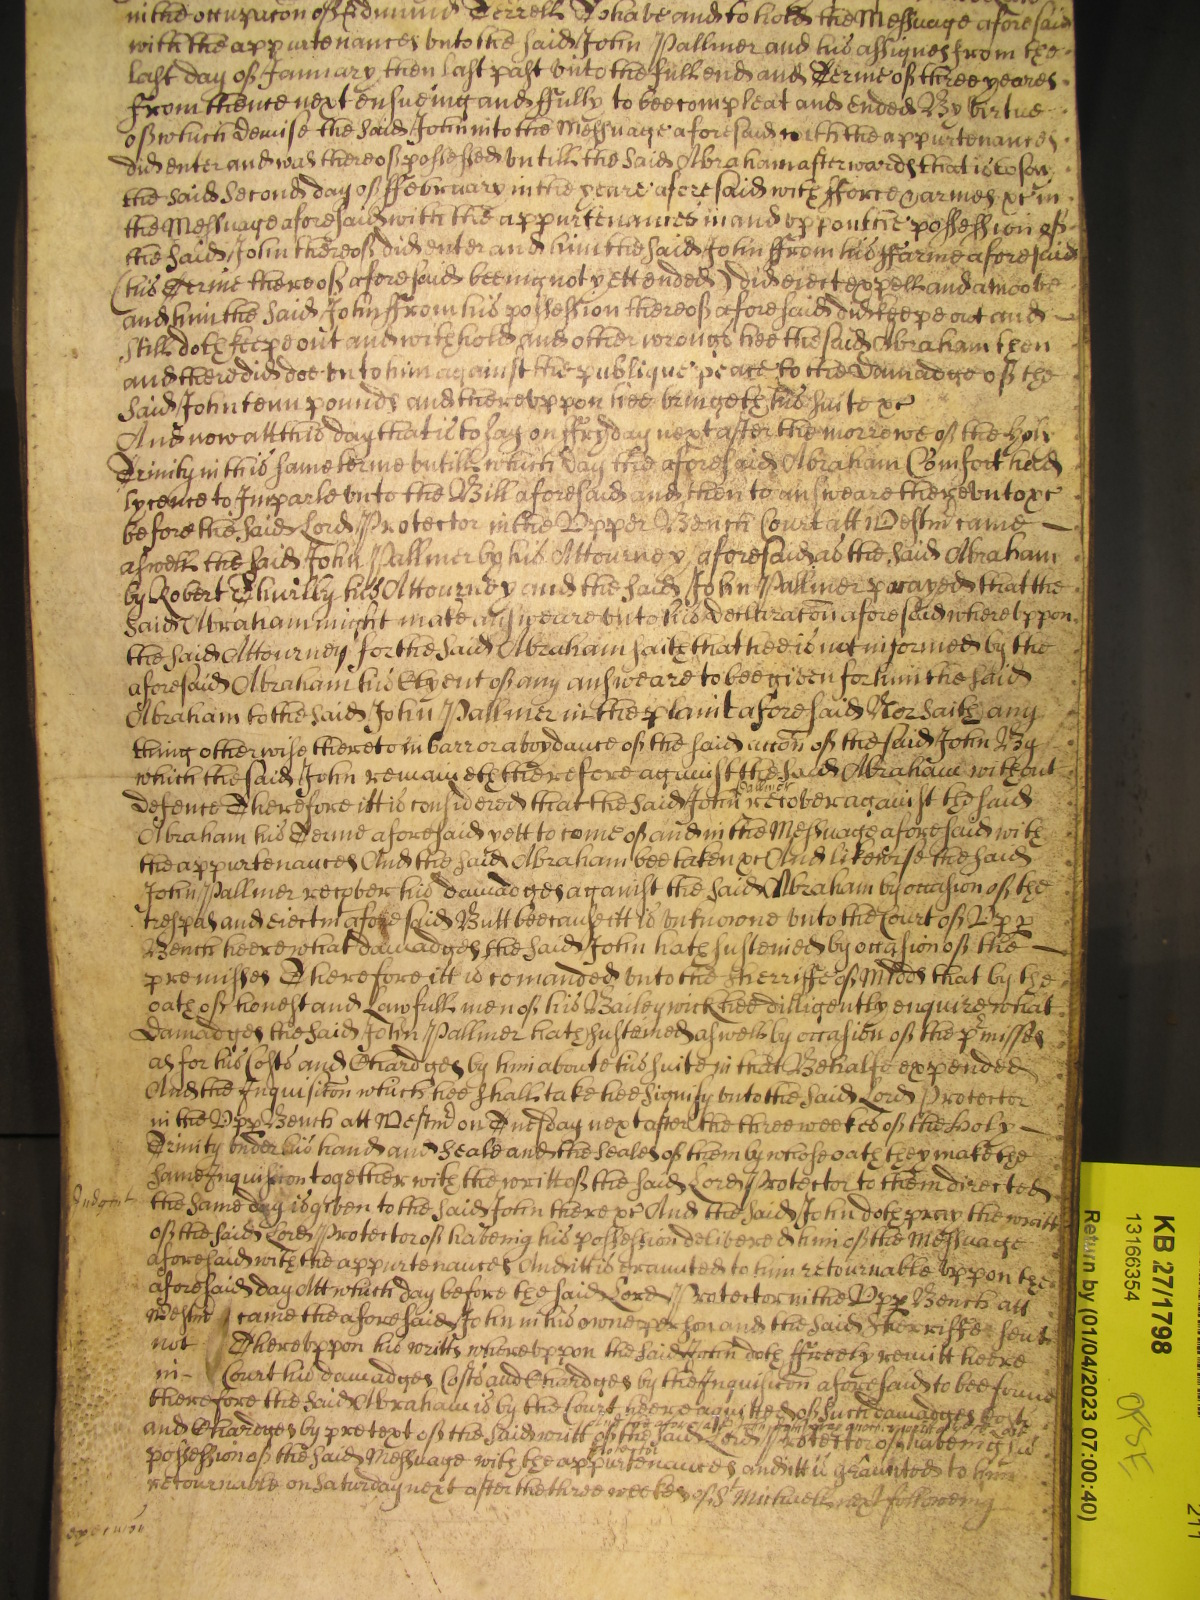 in the occupacon of Edmund Terrell To have and to hold the Messuage aforesaid
with the appurtenances vnto the said John Pallmer and his assignes from the
last day of January then last past vnto the full end and Terme of three yeares
from thence next ensueing and ffully to bee compleat and ended By virtue
of which demise the said John into the Messuage aforesaid with the appurtenances
did enter and was thereof possessed vntill the said Abraham afterwards that is to say
the said Second day of ffebruary in the yeare aforesaid with fforce & armes &c in
the Messuage aforesaid with the appurtenances in and vppon the possession of
the said John thereof did enter and him the said John ffrom his ffarme aforesaid
(his Terme thereof aforesaid beeing not yett ended) did eiect expell and amoove
and him the said John ffrom his possession thereof aforesaid did keepe out and
still doth keepe out and withhold and other wrongs hee the said Abraham then
and there did doe vnto him against the publique peace to the Damadge of the
said John tenn pounds and therevppon hee bringeth his suite &c
And now att this day that is to say on ffryday next after the morrowe of the holy
Trinity in this same terme vntill which day the aforesaid Abraham Comfort had
lycence to Imparle vnto the Bill aforesaid and then to answeare therevnto &c
before the said Lord Protector in the Vpper Bench Court att Westm came
aswell the said John Pallmer by his Attourney aforesaid as the said Abraham
by Robert Thurlby his Attourney and the said John Pallmer prayed that the
said Abraham might make answeare vnto his declaracon aforesaid wherevppon
the said Attourney for the said Abraham saith that hee is not informed by the
aforesaid Abraham his Clyent of any answeare to bee given for him the said
Abraham to the said John Pallmer in the plaint aforesaid Nor saith any
thing otherwise thereto in barr or avoydance of the said accon of the said John By
which the said John remaineth therefore against the said Abraham without
defence Therefore itt is considered that the said John Pallmer recover against the said
Abraham his Terme aforesaid yett to come of and in the Messuage aforesaid with
the appurtenances And the said Abraham bee taken &c And likewise the said
John Pallmer recover his damadges against the said Abraham by occasion of the
trespas and eiectm aforesaid Butt because itt is vnknowne vnto the Court of Vpp
Bench heere what damadges the said John hath susteined by occasion of the
premisses Therefore itt is comanded vnto the Sherriffe of Midds that by the
oath of honest and Lawfull men of his Baileywick hee dilligently enquire what
damadges the said John Pallmer hath susteined aswell by occasion of the pmisses
as for his Costs and Chardges by him about his suite in that Behalfe expended
And the Inquisicon which hee shall take hee signify vnto the said Lord Protector
in the Vpp Bench att Westm on Tuesday next after the three weekes of the holy
Trinity vnder his hand and Seale and the Seales of them by whose oath they make the
same Inquisicon together with the writt of the said Lord Protector to them directed
Iudgmt the same day is given to the said John there &c And the said John doth pray the writt
of the said Lord Protector of haveing his possession delivered him of the Messuage
aforesaid with the appurtenances And itt is graunted to him retournable vppon the
aforesaid day Att which day before the said Lord Protector in the Vpp Bench att
Westm came the aforesaid John in his owne person and the said Sherriffe sent
not Therevppon his writts wherevppon the said John doth ffreely remitt heere
in Court his damadges Costs and Chardges by the Inquisicon aforesaid to bee found
therefore the said Abraham is by the Court heere acquitted of such damadges Costs
and Chardges by pretext of the said writt of the said Lord Protector of haveing his
possession of the said Messuage with the appurtenances and itt is graunted to him
retournable on Saturday next after the three weekes of S Michaell next following
KB 27/1798
13166354
Return by (01/04/2023 07:00:40)
211